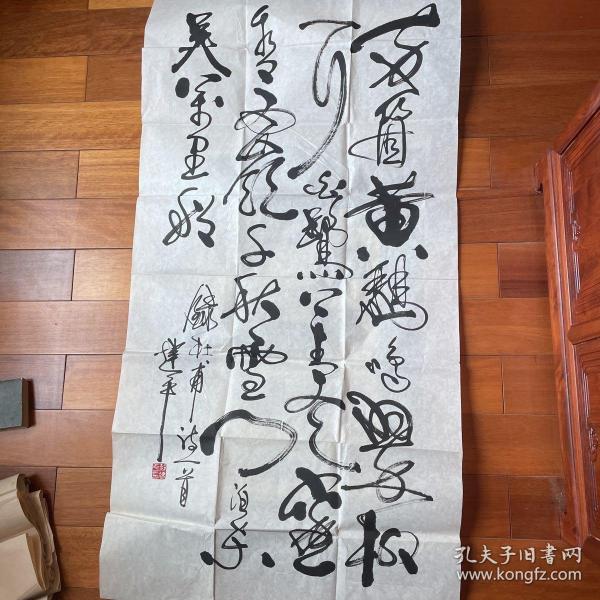 两箇黄鸝鸣翠柳
一行白鷺上青天窗
含西岭千秋雪门泊东
吴萬里船
錄杜甫诗一首
建平
孔夫子旧书网
www.kongfz.com